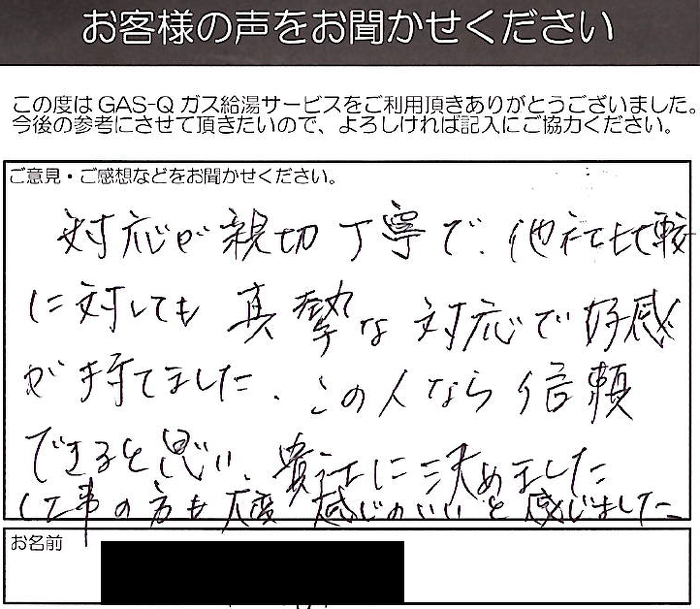 お客様の声をお聞かせください
この度はGAS-Qガス給湯サービスをご利用頂きありがとうございました。
今後の参考にさせて頂きたいので、よろしければ記入にご協力ください。
ご意見・ご感想などをお聞かせください。
対応が親切丁寧で、他社比較
に対しても真摯な対応で好感
が持てました。この人なら信頼
できると思い、貴社に決めました
工事の方も大変感じがいいと感じました
お名前